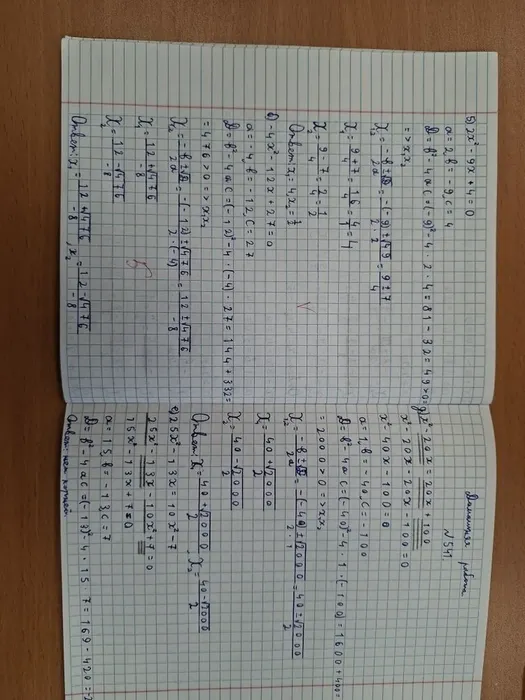 б) 2x² - 9x + 4 = 0
a = 2, b = -9, c = 4
D = b² - 4ac = (-9)² - 4 · 2 · 4 = 81 - 32 = 49 > 0
=> x₁x₂
x₁,₂ = (-b ± √D)/2a = (-(-9) ± √49)/(2 · 2) = (9 ± 7)/4
x₁ = (9 + 7)/4 = 16/4 = 4
x₂ = (9 - 7)/4 = 2/4 = 1/2
Ответ: x₁ = 4 x₂ = 1/2
-4x² - 12x + 27 = 0
a = -4, b = -12, c = 27
D = b² - 4ac = (-12)² - 4 · (-4) · 27 = 144 + 332 =
= 476 > 0 => x₁x₂
x₁,₂ = (-b ± √D)/2a = (-(-12) ± √476)/(2 · (-4)) = (12 ± √476)/-8
x₁ = (12 + √476)/-8
x₂ = (12 - √476)/-8
Ответ: x₁ = (12 + √476)/-8, x₂ = (12 - √476)/-8
Домашняя работа
№541
x² - 20x = 20x + 100
x² - 20x - 20x - 100 = 0
x² - 40x - 100 = 0
a = 1, b = -40, c = -100
D = b² - 4ac = (-40)² - 4 · 1 · (-100) = 1600 + 400 =
= 2000 > 0 => x₁x₂
x₁,₂ = (-b ± √D)/2a = (-(-40) ± √2000)/(2 · 1) = (40 ± √2000)/2
x₁ = (40 + √2000)/2
x₂ = (40 - √2000)/2
Ответ: x₁ = (40 + √2000)/2 x₂ = (40 - √2000)/2
25x² - 13x = 10x² - 7
25x² - 13x - 10x² + 7 = 0
15x² - 13x + 7 = 0
a = 15, b = -13, c = 7
D = b² - 4ac = (-13)² - 4 · 15 · 7 = 169 - 420 =
Ответ: нет корней